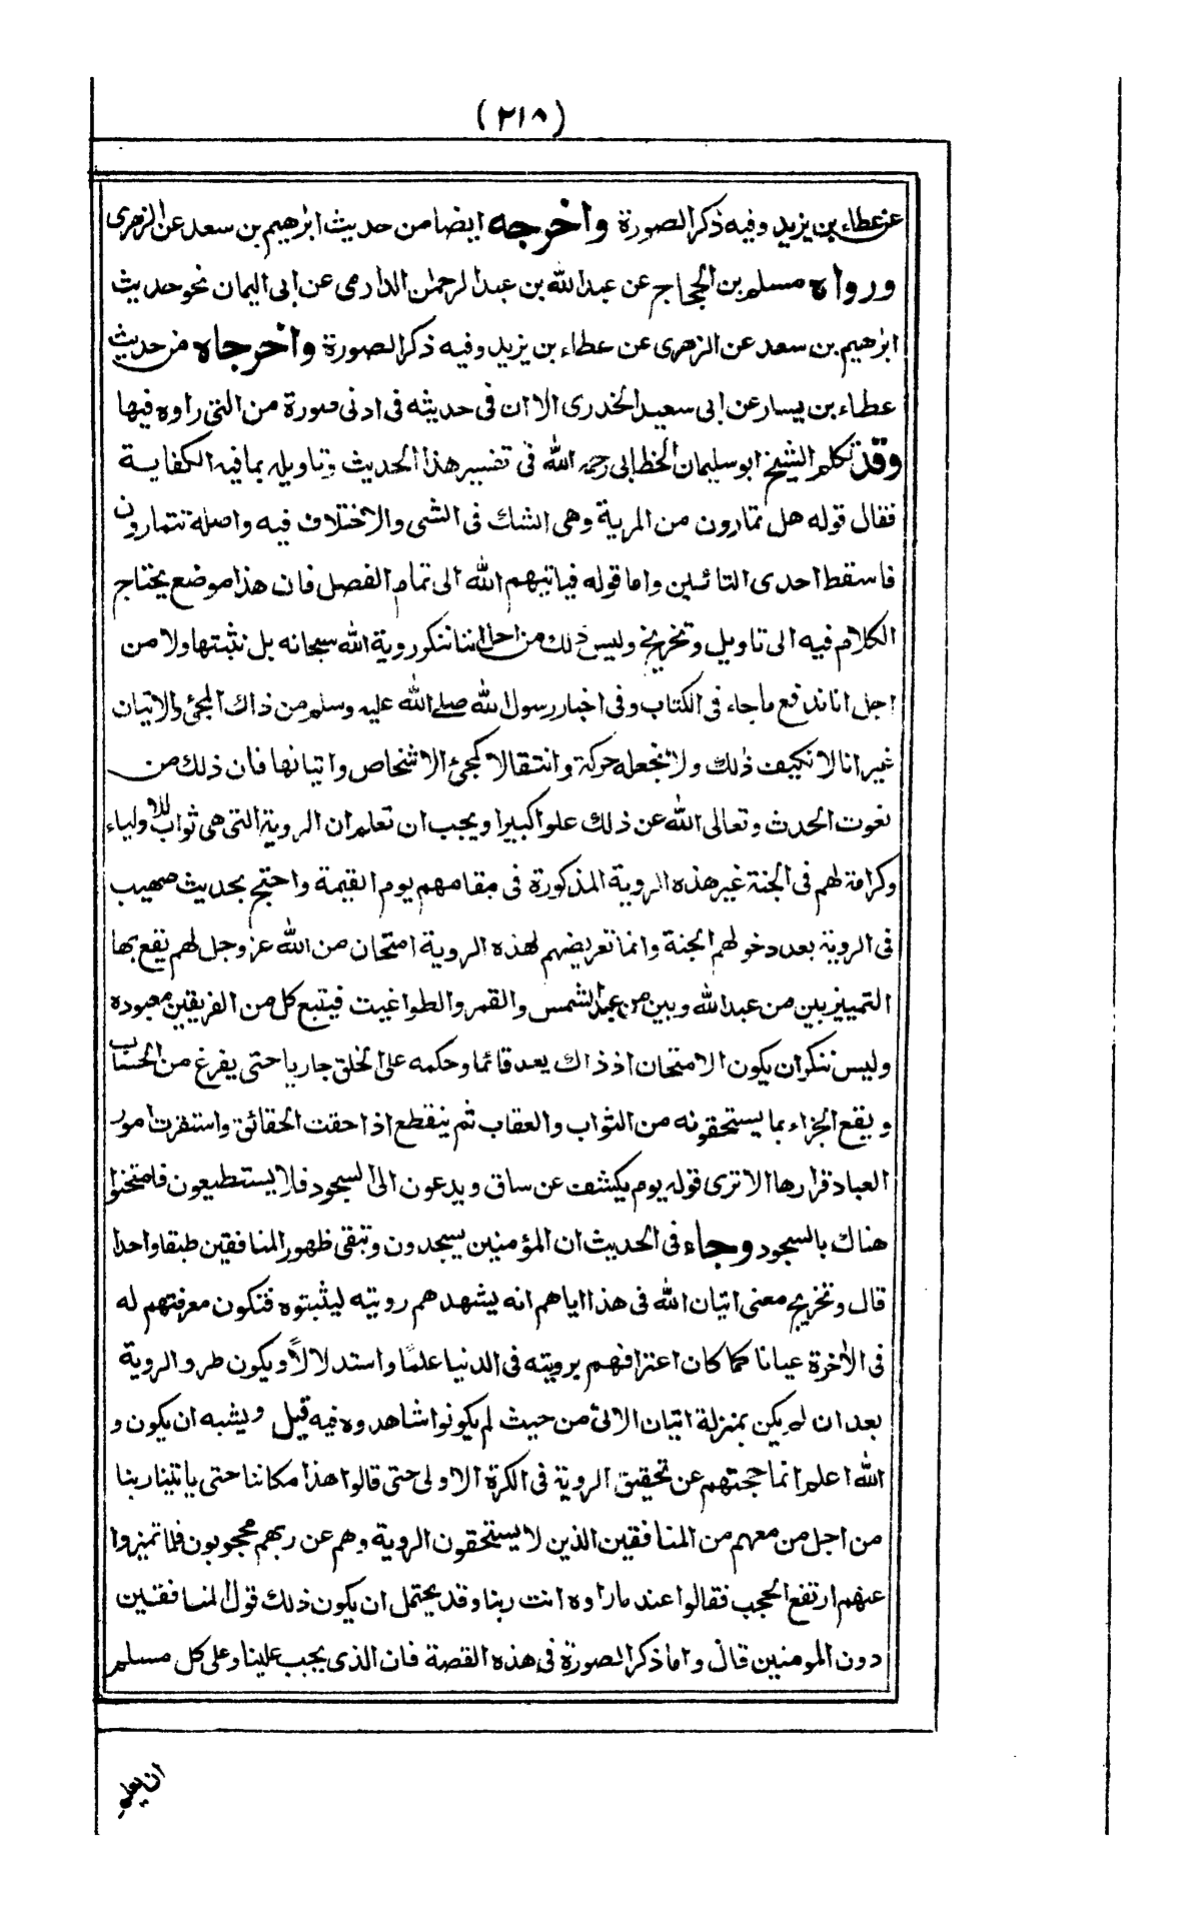 (٢١٨)
عن عطاء بن يزيد وفيه ذكر الصورة واخرجه ايضا من حديث ابرهيم بن سعد عن الزهرى
ورواه مسلم بن الحجاج عن عبد الله بن عبد الرحمن الدارمى عن ابى اليمان نحو حديث
ابرهيم بن سعد عن الزهرى عن عطاء بن يزيد وفيه ذكر الصورة واخرجاه من حديث
عطاء بن يسار عن ابى سعيد الخدرى الا ان فى حديثه فى ادنى صورة من التى راوه فيها
وقد تكلم الشيخ ابو سليمان الخطابى رحمه الله فى تفسير هذا الحديث وتاويله بما فيه الكفاية
فقال قوله هل تمارون من المرية وهى الشك فى الشى والاختلاف فيه واصله تتمارون
فاسقط احدى التائين واما قوله فياتيهم الله الى تمام الفصل فان هذا موضع يحتاج
الكلام فيه الى تاويل وتخريج وليس ذلك من اجل اننا ننكر روية الله سبحانه بل نثبتها ولا من
اجل انا ندفع ما جاء فى الكتاب وفى اخبار رسول الله صلے الله عليه وسلم من ذاك المجئ والاتيان
غير انا لا نكيف ذلك ولا نجعله حركة وانتقالا كمجئ الاشخاص واتيانها فان ذلك من
نعوت الحدث وتعالى الله عن ذلك علوا كبيرا ويجب ان تعلم ان الروية التى هى ثواب للاولياء
وكرامة لهم فى الجنة غير هذه الروية المذكورة فى مقامهم يوم القيمة واحتج بحديث صهيب
فى الروية بعد دخولهم الجنة وانما تعريضهم لهذه الروية امتحان من الله عز وجل لهم يقع بها
التمييز بين من عبد الله وبين من عبد الشمس والقمر والطواغيت فيتبع كل من الفريقين معبوده
وليس ننكر ان يكون الامتحان اذ ذاك يعد قائما وحكمه على الخلق جاريا حتى يفرغ من الحساب
ويقع الجزاء بما يستحقونه من الثواب والعقاب ثم ينقطع اذا حقت الحقائق واستقرت امور
العباد قرارها الا ترى قوله يوم يكشف عن ساق ويدعون الى السجود فلا يستطيعون فامتحنوا
هناك بالسجود وجاء فى الحديث ان المؤمنين يسجدون وتبقى ظهور المنافقين طبقا واحدا
قال وتخريج معنى اتيان الله فى هذا اياهم انه يشهدهم رويته ليثبتوه فتكون معرفتهم له
فى الاخرة عيانا كما كان اعترافهم برويته فى الدنيا علمًا واستدلالاً ويكون طرو الروية
بعد ان لم يكن بمنزلة اتيان الاتى من حيث لم يكونوا شاهدوه فيه قيل ويشبه ان يكون و
الله اعلم انما حجتهم عن تحقيق الروية فى الكرة الاولى حتى قالوا هذا مكاننا حتى ياتينا ربنا
من اجل من معهم من المنافقين الذين لا يستحقون الروية وهم عن ربهم محجوبون فلما تميزوا
عنهم ارتفع الحجب فقالوا عند ما راوه انت ربنا وقد يحتمل ان يكون ذلك قول المنافقين
دون المومنين قال واما ذكر الصورة فى هذه القصة فان الذى يجب علينا وعلى كل مسلم
ان يعلم